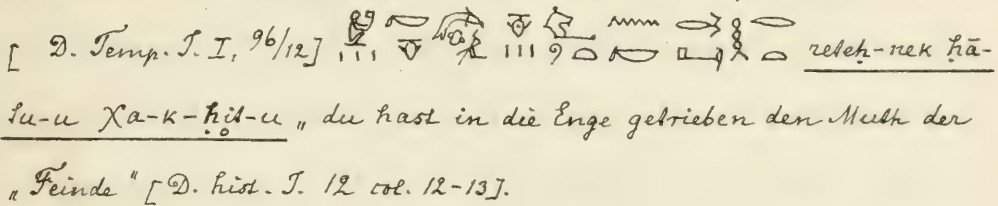 [ D. Temp. I. I, 96/12] reteḥ-nek ḥā-
tu-u χa-k-ḥit-u „ du hast in die Enge getrieben den Muth der
„ Feinde “ [ D. hist. I. 12 col. 12-13].